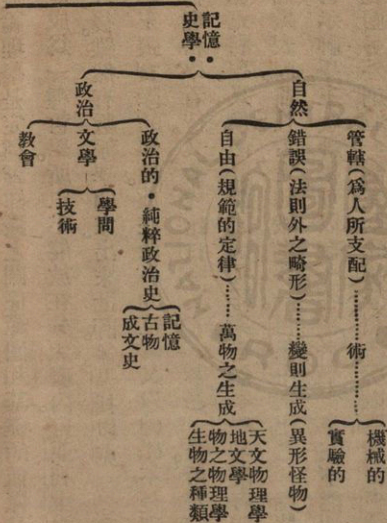 記憶••
史學
自然
管轄（為人所支配）………術………
機械的
實驗的
錯誤（法則外之畸形）……變則生成（異形怪物）
自由（規範的定律）……萬物之生成
天文物理學
地文學
物之物理學
生物之種類
政治
政治的•純粹政治史
記憶
古物
成文史
文學
學問
技術
教會